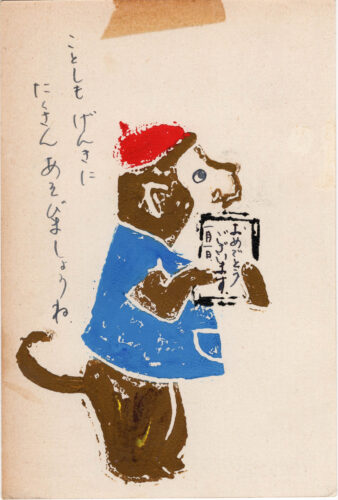 ことしも げんきに
たくさん あそびましょうね
おめでとう
ございます
一月一日